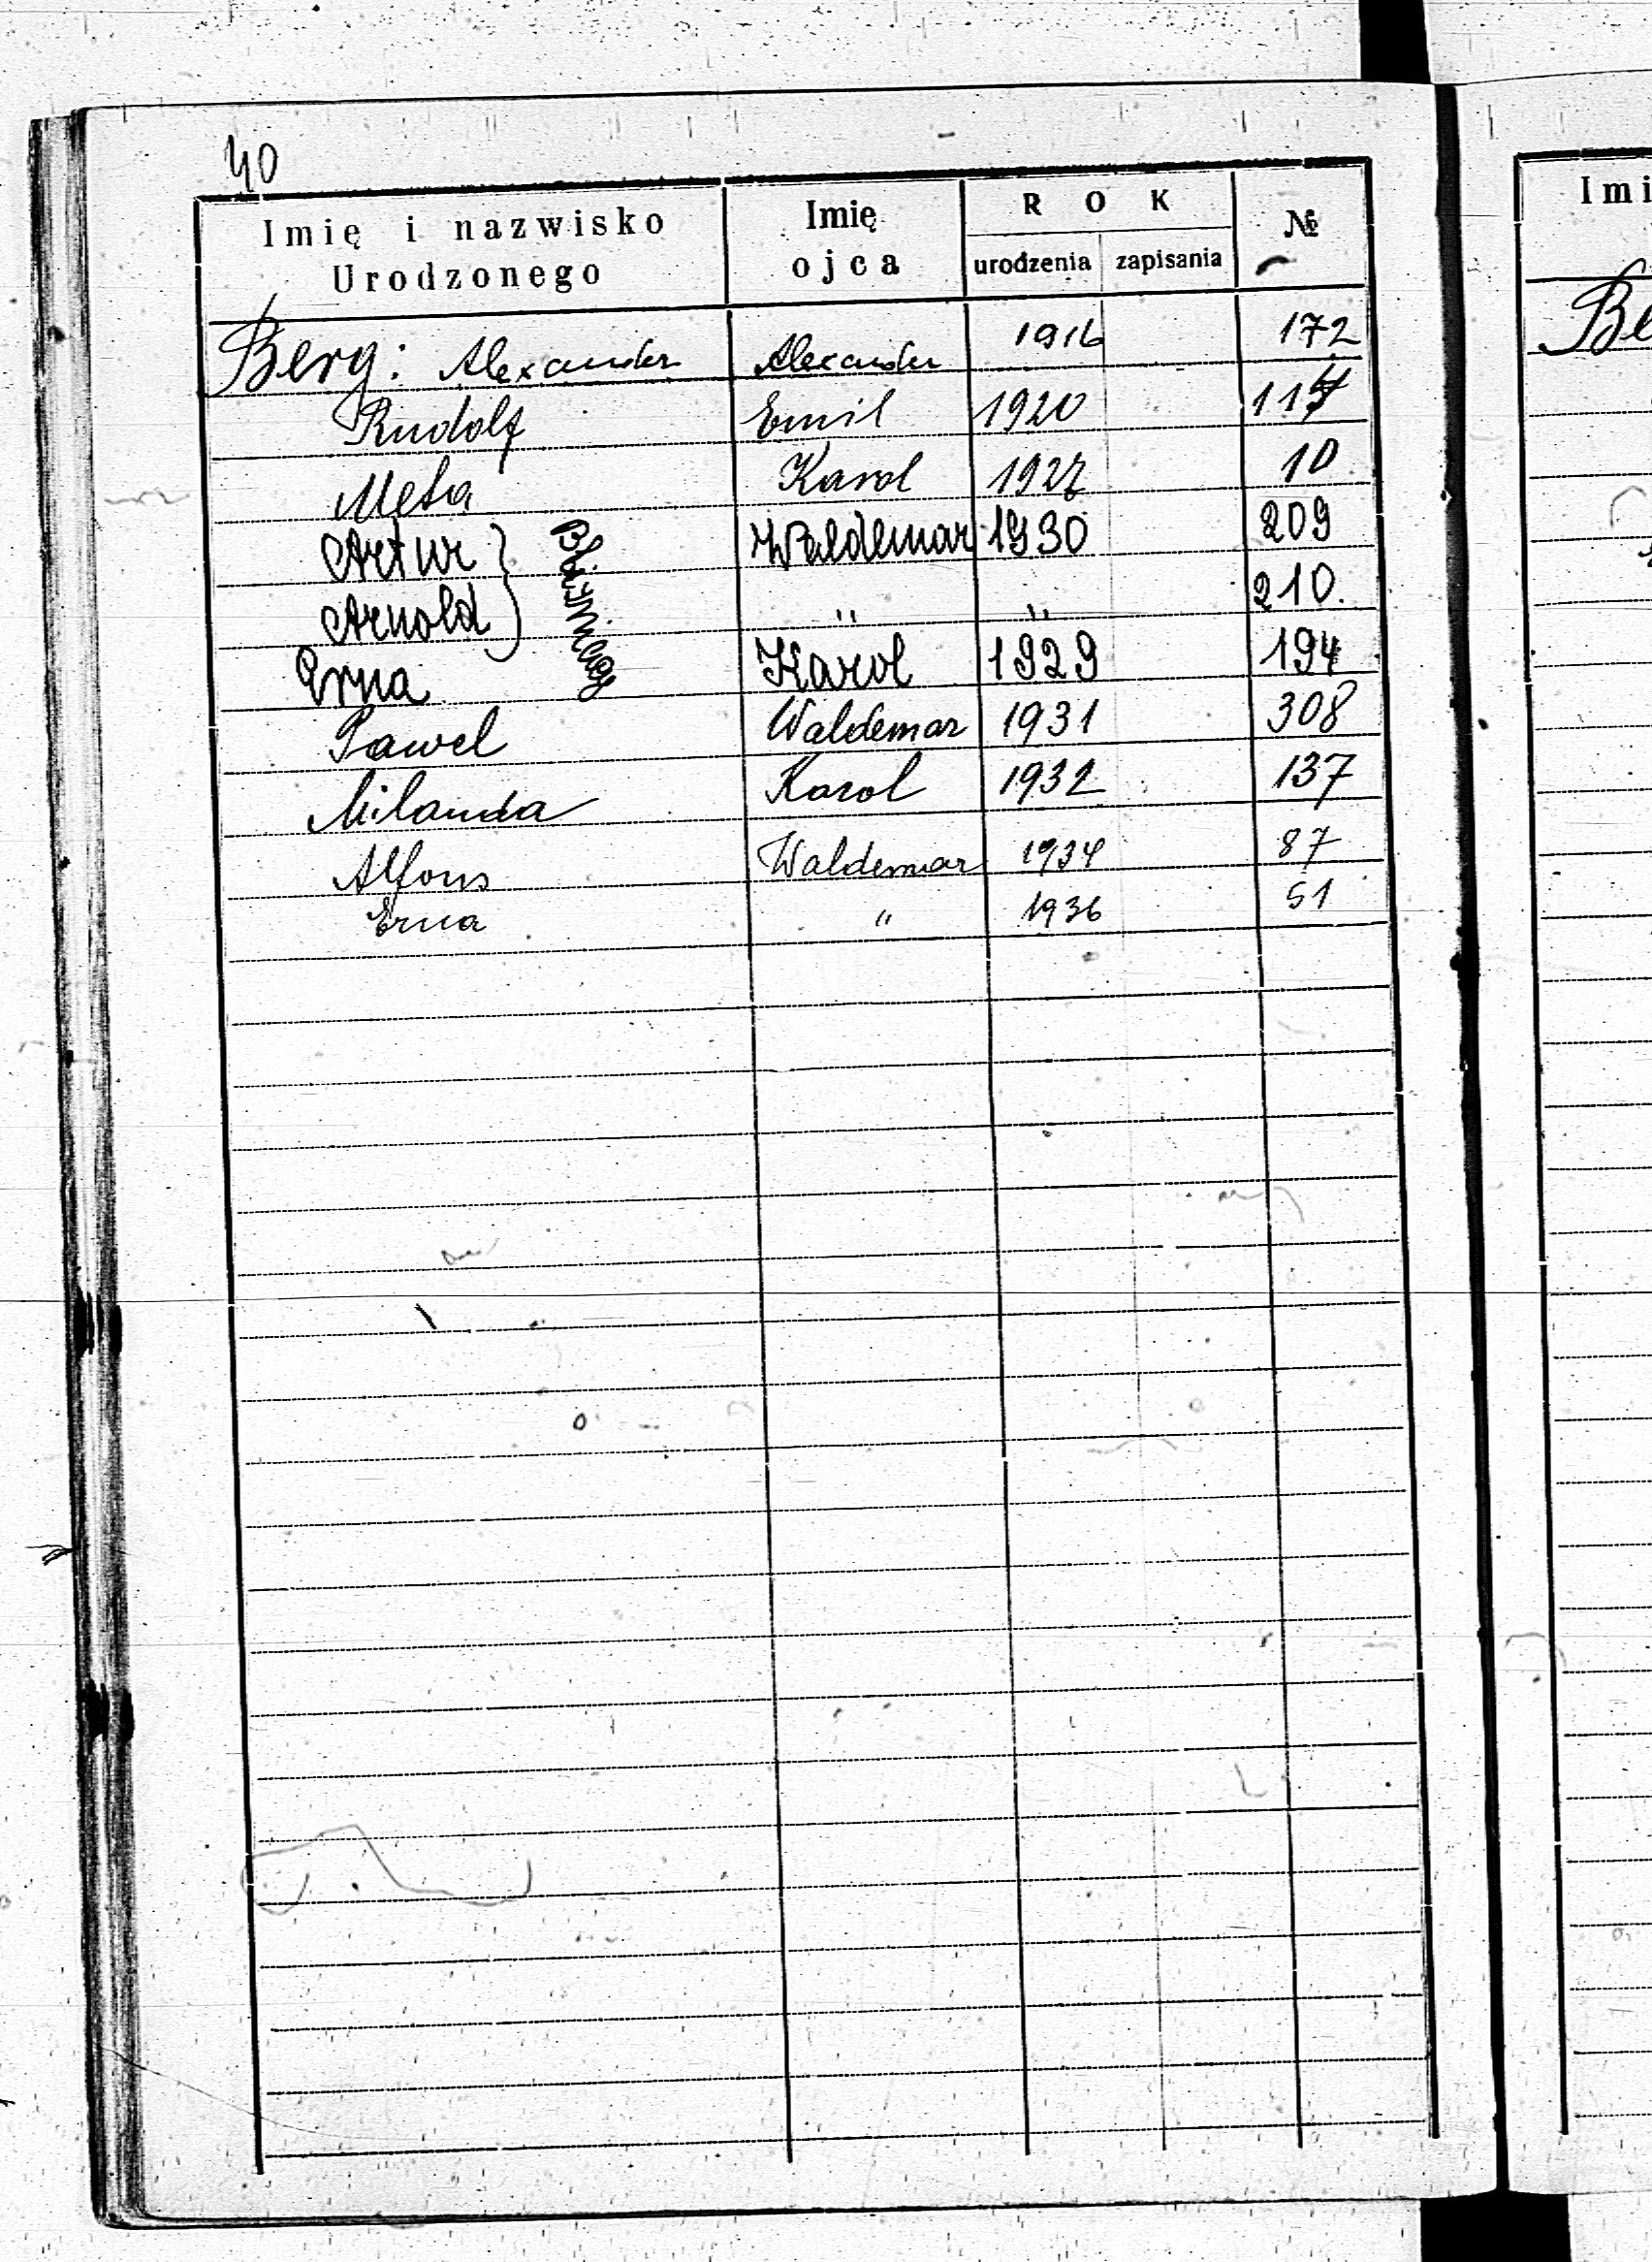 40
Imię i nazwisko Urodzonego Imię ojca ROK urodzenia zapisania №
Berg: Alexander Alexander 1916 172
Rudolf Emil 1920 114
Meta Karol 1927 10
Artur } Bliźnięta Waldemar 1930 209
Arnold " " 210.
Erna Karol 1929 194
Pawel Waldemar 1931 308
Milanda Karol 1932 137
Alfons Waldemar 1934 87
Erna " 1936 51
Imi
Be